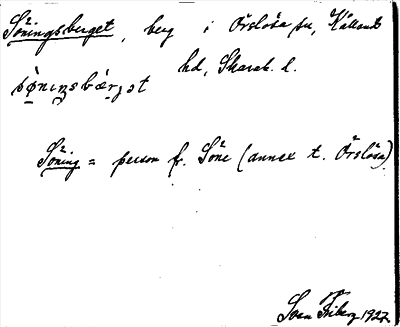 Söningsberget, berg i Örslösa sn, Kållands
hd, Skarab. l.
sø̀niŋsbær̀jət
Söning = person fr. Söne (annex t. Örslösa)
Sven Friberg 1927.